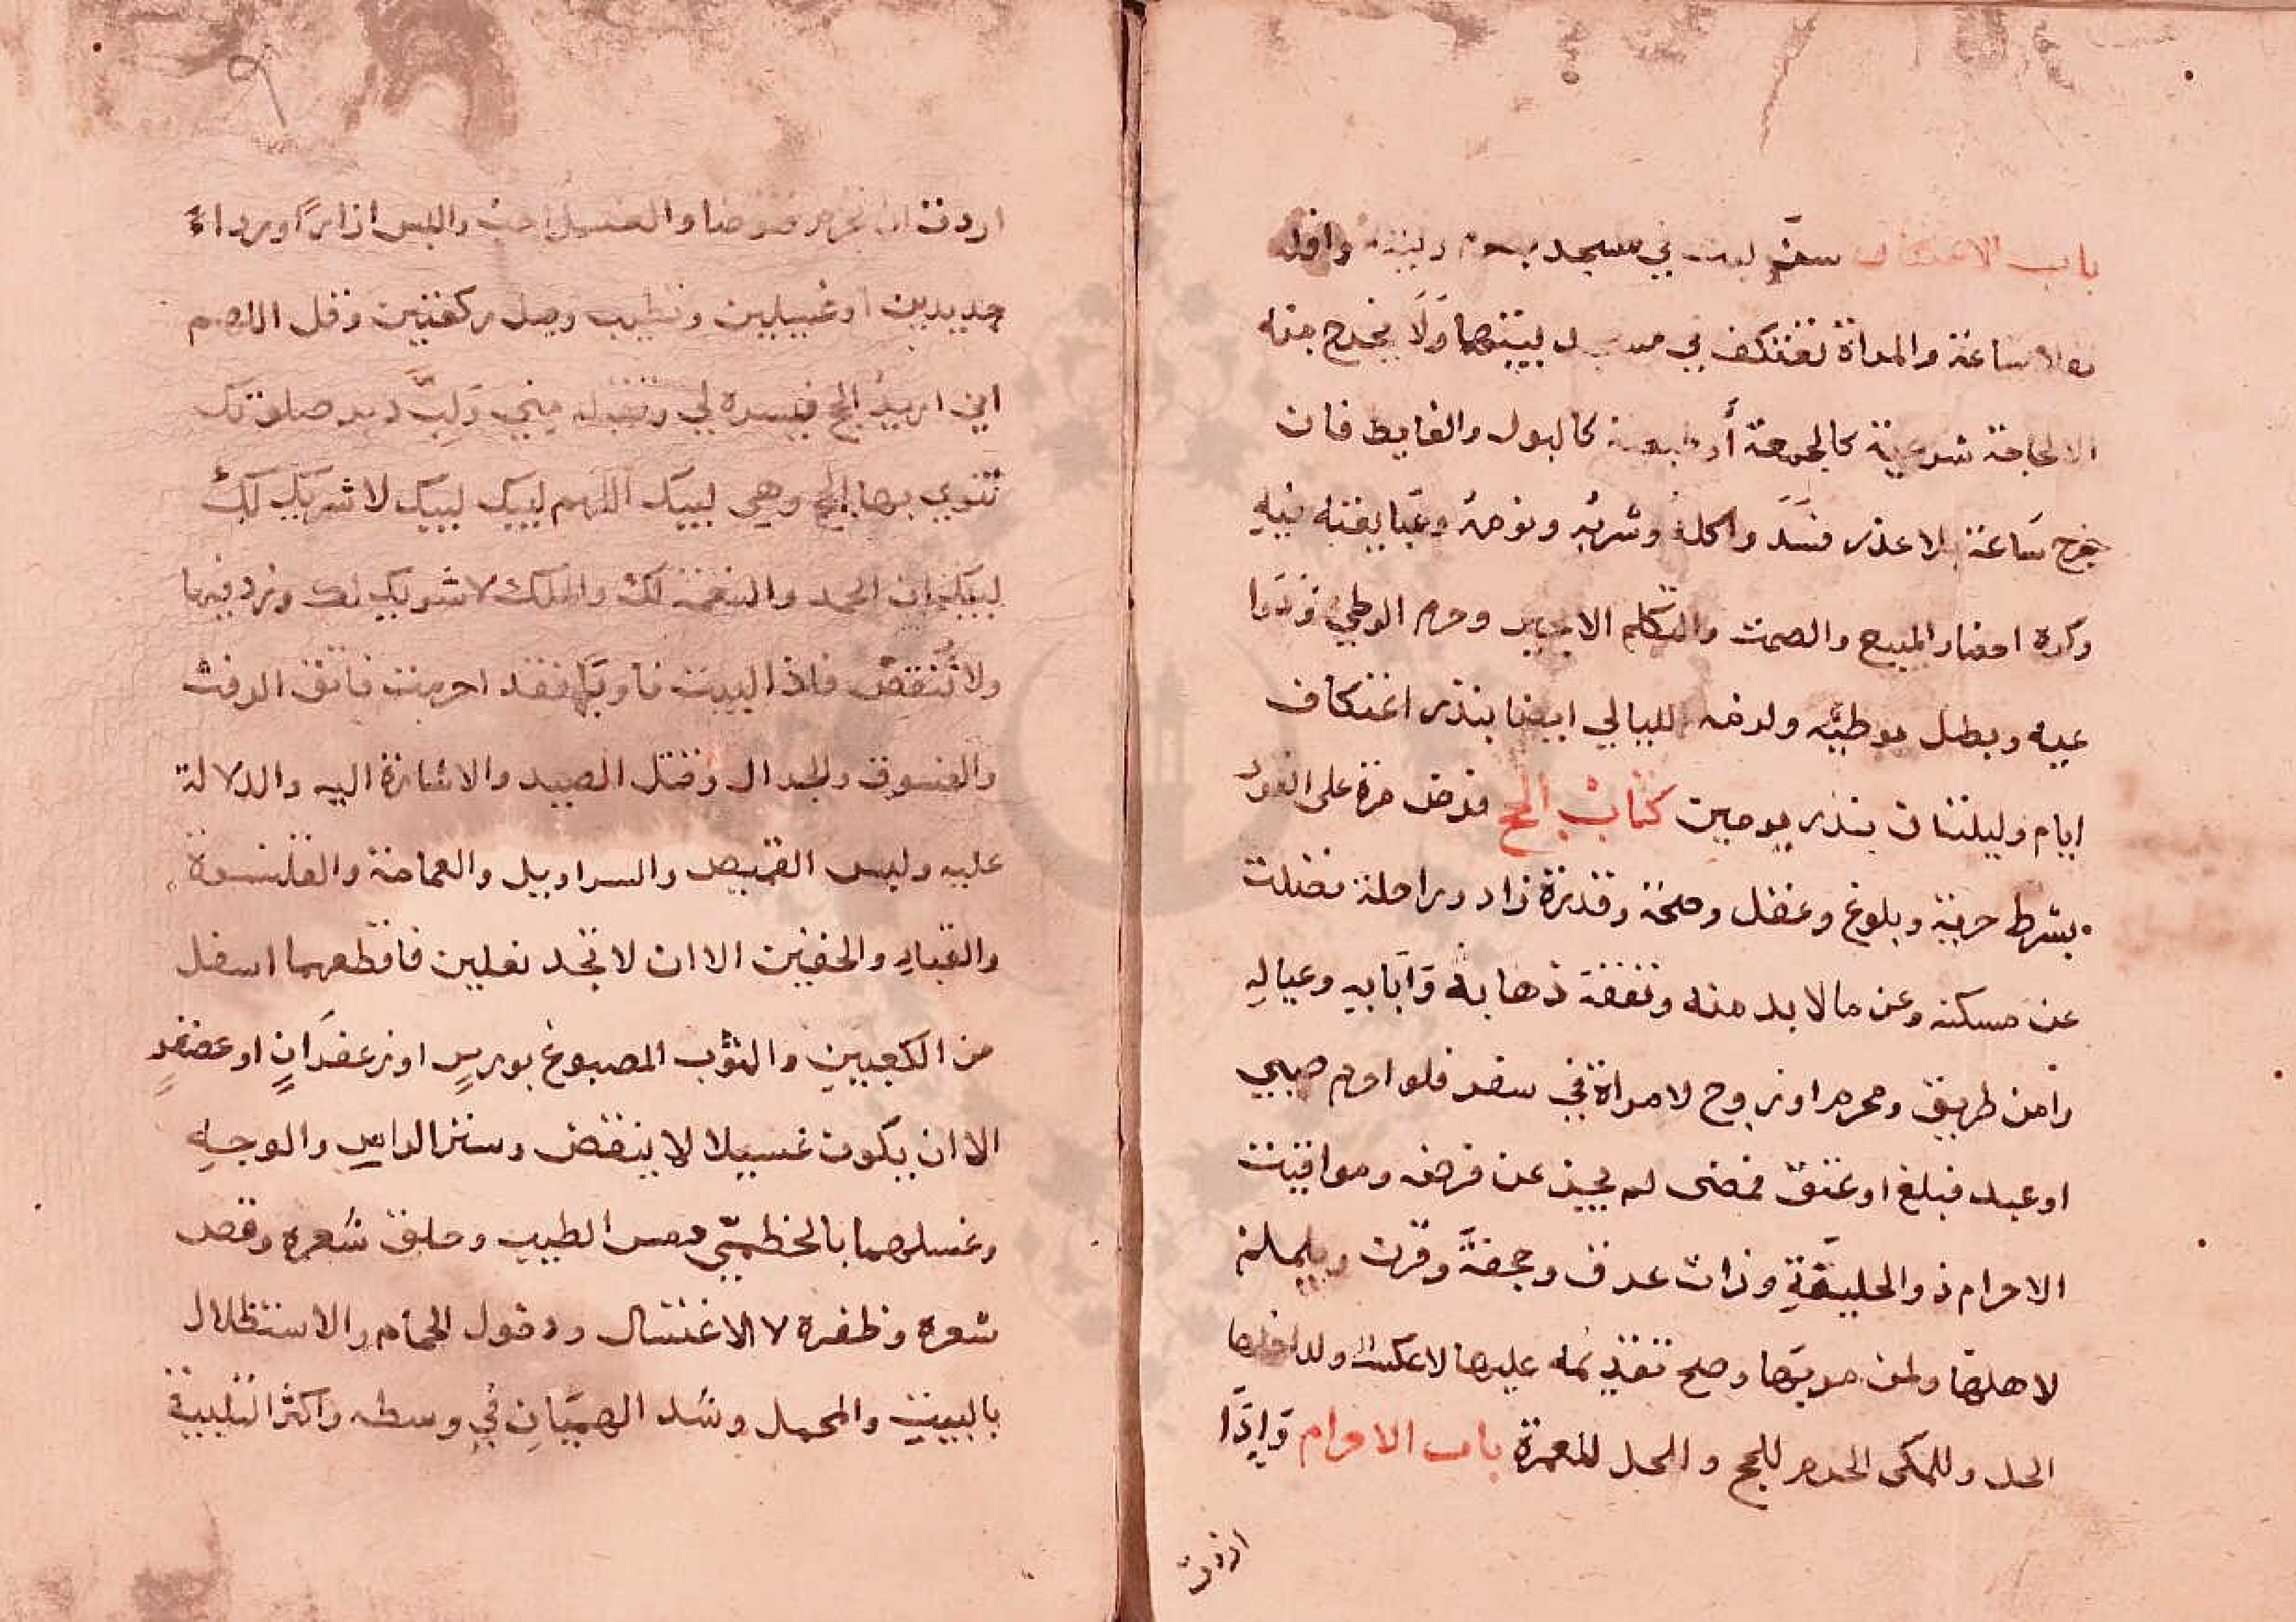 باب الاعتكاف سنّ لبث في مسجد بصوم ونية واقله
نفلا ساعة والمراة تعتكف في مسجد بيتها وَلَا يخرج منه
الا لحاجة شرعية كالجمعة أو طبيعية كالبول والغايط فان
خرج سَاعة بلا عذر فسَدَ واكلهُ وشربُه ونومهُ ومبَايعته فيهِ
وكره احضار المبيع والصمت والتكلم الا بخير وحرم الوطيُ ودَوَا
عيه وبطل بوطيِه ولزمه الليالي ايضا بنذر اعتكاف
ايام وليلتان بنذر يومين كتابُ الحج فرض مرة على الفور
بشرط حرية وبلوغ وعقل وصحة وقدرة زاد وراحلة فضلت
عن مسكنه وعن مالا بد منه ونفقة ذهابه وَايَابه وعيالهِ
وامن طريق ومحرم او زوج لامراة في سفر فلو احرم صبي
او عبد فبلغ او عتق فمضى لم يجز عن فرضه ومواقيت
الاحرام ذو الحليفةِ وذات عرق وجحفة وقرن ويلملم
لاهلها ولمن مر بها وصح تقديمه عليها لا عكسه ولداخلها
الحل وللمكى الحرم للحج والحل للعمرة باب الاحرام وَاِذَا
اردت
اردت ان تحرم فتوضا والغسل احب والبس ازارًا ورداءً
جديدين او غسيلين وتطيب وصل ركعتين وقل اللهم
اني اريدُ الحج فيسره لي وتقبله مِني وَلبِّ دبر صلوتك
تنوي بها الحج وهي لبيك اللهم لبيك لبيك لا شريك لك
لبيك ان الحمد والنعمة لك والملك لا شريك لك وزد فيها
ولا تُنقصْ فاذا لبيت ناويًا فقد احرمت فاتق الرفث
والفسوق والجدال وقتل الصيد والاشارة اليه والدلالة
عليه ولبس القميص والسراويل والعمامة والقلنسوة
والقباءِ والخفين الا ان لا تجد نعلين فاقطعهما اسفل
من الكعبين والثوب المصبوغ بورسٍ او زعفَرانٍ او عصفرٍ
الا ان يكون غسيلا لا ينقض وستر الراسِ والوجهِ
وغسلهما بالخطميّ ومس الطيب وحلق شعره وقص
شعره وظفره لا الاغتسال ودخول الحمام والاستظلال
بالبيتِ والمحمل وشد الهميَانِ في وسطه واكثر التلبية